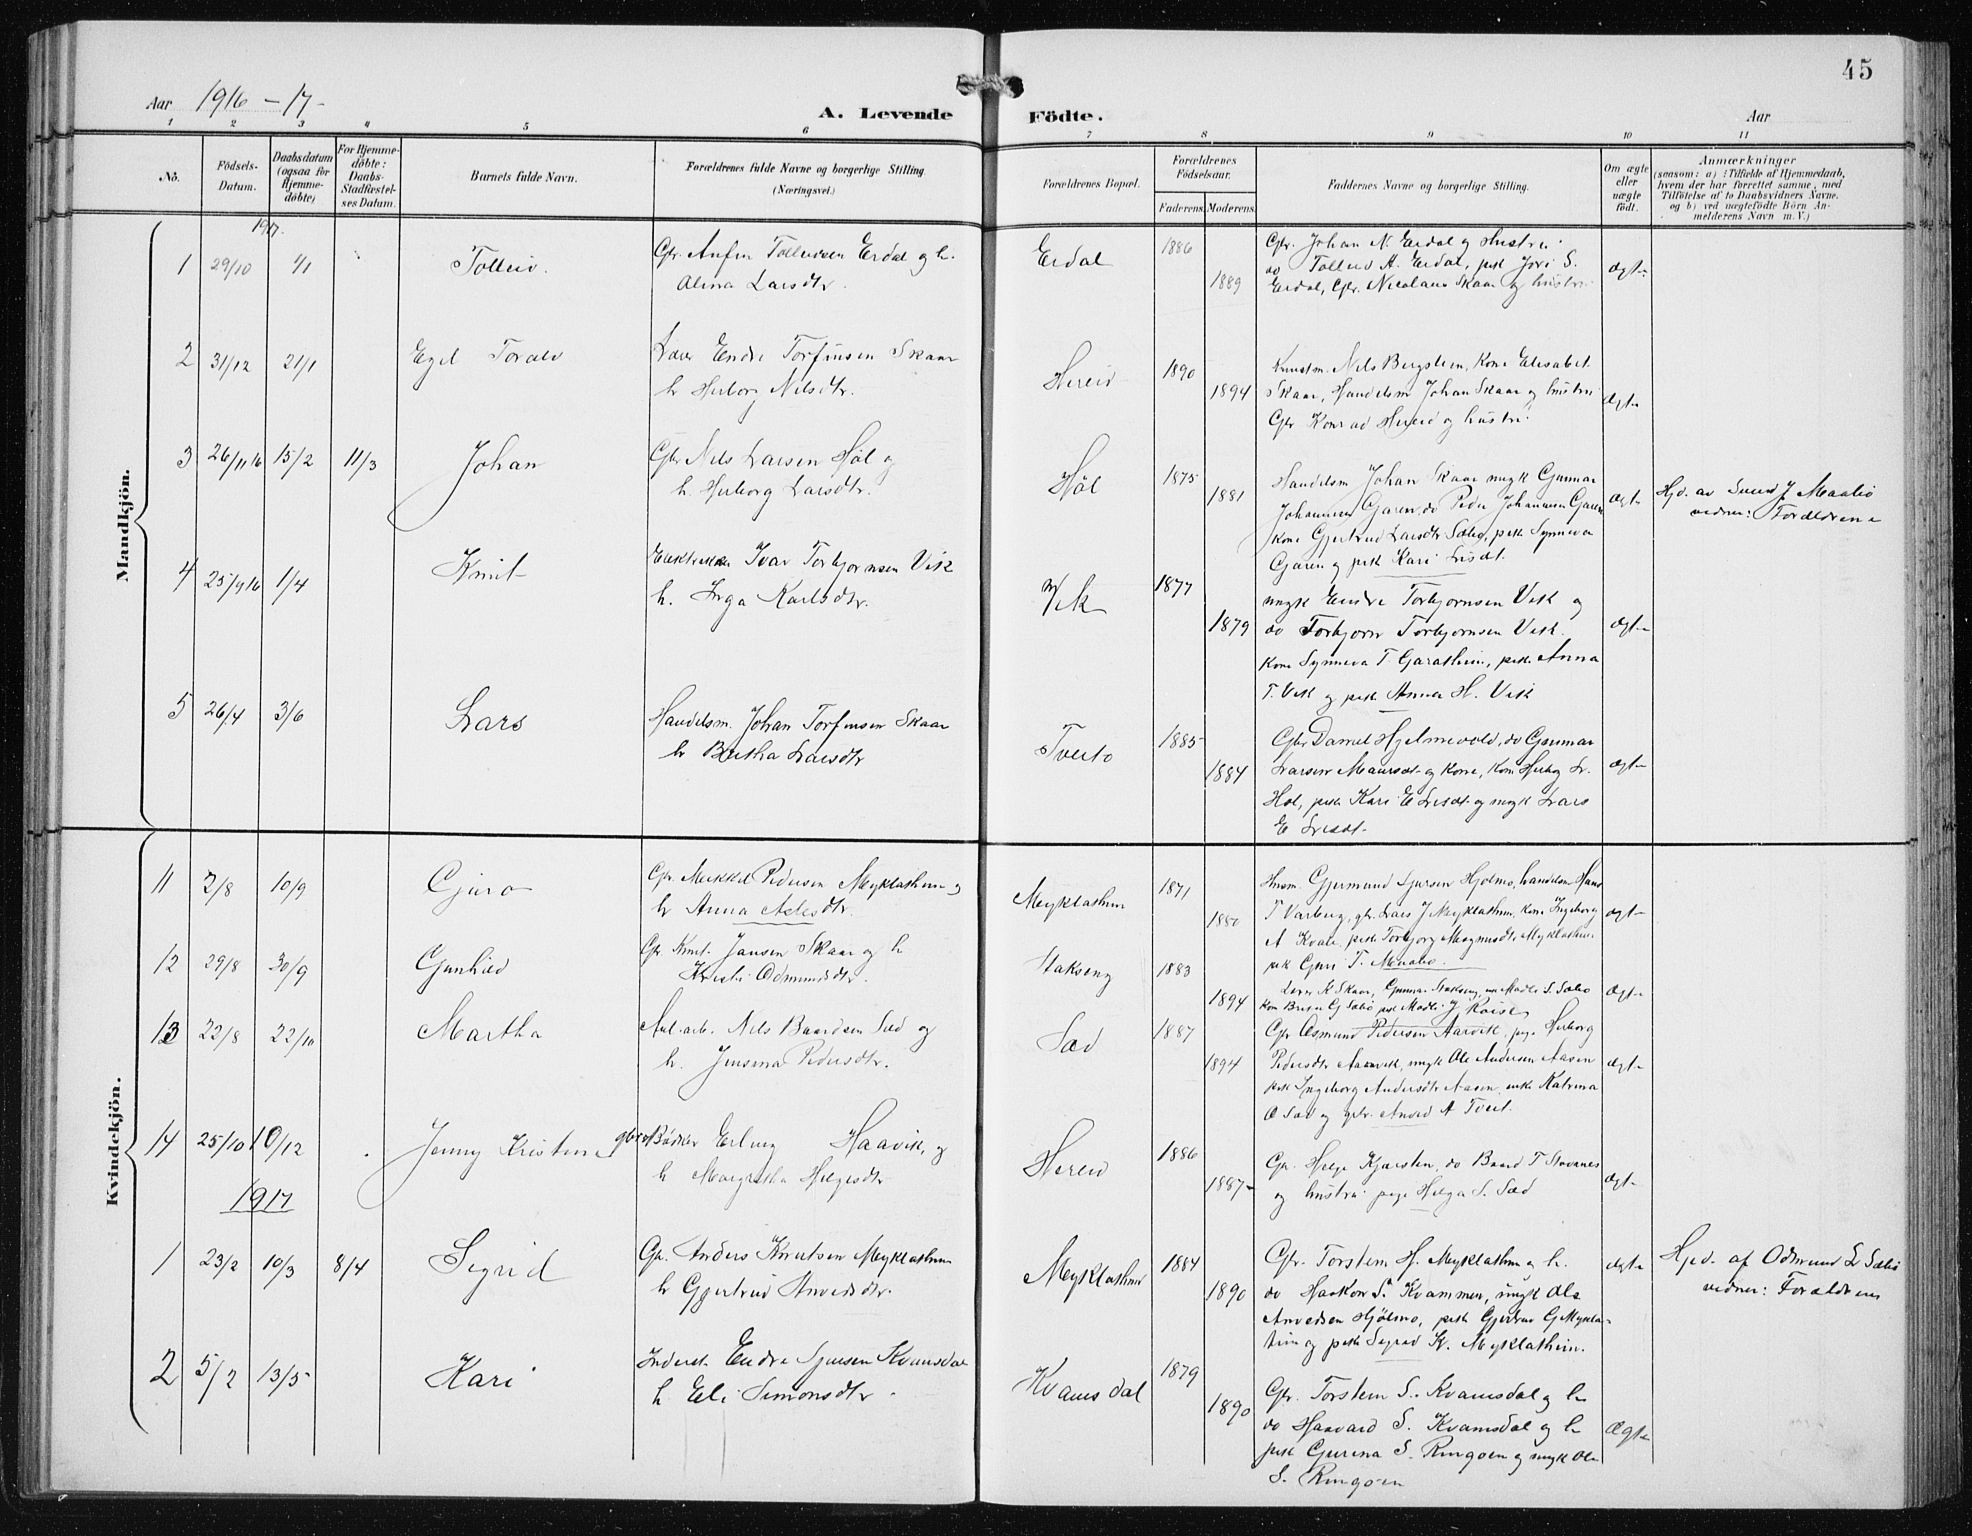 45
Aar 1916-17-
A. Levende Födte.
Aar
1 2 3 4 5 6 7 8 9 10 11
Nô.
Födsels-Datum.
Daabsdatum (ogsaa for Hjemme-döbte)
For Hjemme-döbte: Daabs-Stadfæstel-ses Datum.
Barnets fulde Navn.
Forældrenes fulde Navne og borgerlige Stilling.
(Næringsvei.)
Forældrenes Bopæl.
Forældrenes Födselsaar.
Faderens. Moderens.
Faddernes Navne og borgerlige Stilling.
Om ægte eller uægte födt.
Anmærkninger
(saasom: a) i Tilfælde af Hjemmedaab,
hvem der har forrettet samme, med
Tilföielse af to Daabsvidners Navne.
og b) ved uægtefödte Börn An-
melderens Navn m. V.)
Mandkjön.
1917.
1 29/10 1/1 Tolleiv.
Gbr. Anfin Tolleivsen Erdal og h.
Alina Larsdtr.
Erdal 1886 1889
Gbr. Johan N. Erdal og Hustru
do Tolleiv A. Erdal, pik Jori S.
Erdal, Gbr. Nicolaus Skaar og hustru
Ægte
2 31/12 21/1 Egil Toralv
Lærer Endre Torfinsen Skaar
h Herborg Nilsdtr.
Hereid 1890 1894
Kunstm. Nils Bergslien, Kone Elisabet
Skaar, Handelsm Johan Skaar og hustru
Gbr Konrad Hereid og hustru
Ægte
3 26/11 16 15/2 11/3 Johan
Gbr Nils Larsen Høl og
h. Herborg Larsdtr.
Høl 1875 1881
Handelsm Johan Skaar ungk Gunnar
Johannesen Garen, do Peder Johannesen Garen
Kone Gjertrud Larsdtr Sæbø, pik Synneva
Garen og pik Kari Lisdt.
Ægte
Hjd. av Svend J Maabø
vidner: Forældrene
4 25/9 16 1/4 Knut
Elektriker Ivar Torbjørnsen Vik
h. Inga Karlsdtr.
Vik 1877 1879
ungk Endre Torbjørnsen Vik og
do Torbjørn Torbjørnsen Vik.
Kone Synneva T. Garatheim, pik Anna
T. Vik og pik Anna H. Vik
Ægte
5 26/4 3/6 Lars
Handelsm. Johan Torfinsen Skaar
h Bertha Larsdtr
Tveito 1885 1884
Gbr Daniel Hjelmevold, do Gunnar
Larsen Maurset og Kone, Kone Herbg L.
Høl, pik Kari E Lisdt og ungk Lars
E Lisdt
Ægte
Kvindekjön.
11 2/8 10/9 Guro
Gbr. Mikkel Pedersen Myklathun og
h Anna Aslesdtr.
Myklathun 1871 1880
Husm. Gjermund Sjursen Hjølmo, handelsm Hans
T Varberg, gbr. Lars J Myklathun, Kone Ingeborg
A Kvale, pik Torbjørg Magnusdtr Myklathun
pik Guri T. Maabø.
Ægte
12 29/8 30/9 Gunhild
Gbr Knut Jansen Skaar og h
Kristi Odmundsdtr.
Stakseng 1883 1894
Lærer K Skaar, Gunnar Stakseng, Madli S. Sæbø
Kone Brita G Sæbø pik Madli J Røise
Ægte
13 22/8 22/10 Martha
Anl.arb. Nils Baardsen Sæd og
h. Jensina Pedersdtr.
Sæd 1887 1894
Gbr Osmund Pedersen Aarvik, pige Herborg
Pedersdtr Aarvik, ungk Ole Andersen Aasen
pik Ingeborg Andersdtr Aasen, enke Katrina
O Sæd og gbr. Anved A Tveit.
Ægte
14 25/10 10/12 Jenny Kristine
gbr og Bødker Erling Haavik, og
h Margretha Helgesdtr
Hereid 1886 1887
Gbr. Helge Kjærsten, do Baard T Stovanes
og hustru pige Helga S. Sæd
Ægte
1917
1 23/2 10/3 8/4 Sigrid
Gbr. Anders Knutsen Myklathun
h Gjertrud Anvedsdtr.
Myklathun 1884 1890
Gbr. Torstein H. Myklathun og h.
do Haakon S. Kvammen, ungk Ole
Anvedsen Hjølmo, pik Gjertrud G Mykla-
thun og pik Sigrid K. Myklathun.
Ægte
Hjd. af Odmund L Sæbø
vidner: Forældrene
2 5/2 13/5 Kari
Inderst Endre Sjursen Kvamsdal
h Eli Simonsdtr.
Kvamsdal 1879 1890
Gbr. Torstein S. Kvamsdal og h
do Haavard S. Kvamsdal og h
pik Gurina S. Ringøen og ungk Ole
S. Ringøen
Ægte